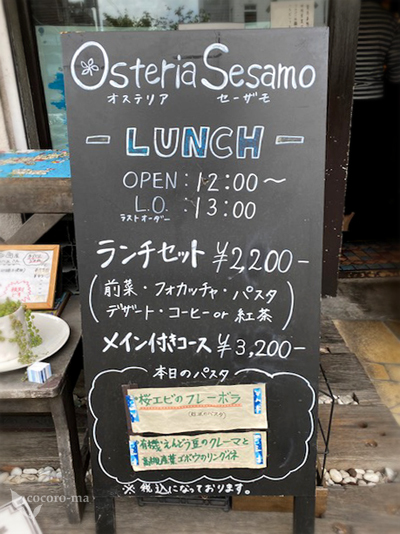 Osteria Sesamo
オステリア セーザモ
- LUNCH -
OPEN : 12:00～
L.O. : 13:00
ラストオーダー
ランチセット ¥2,200-
(前菜・フォカッチャ・パスタ
デザート・コーヒー or 紅茶)
メイン付きコース ¥3,200-
本日のパスタ
桜エビのフレーボラ
有機えんどう豆のクレーマと
産葉ゴボウのリングイネ
※税込になっております。
cocoro-ma